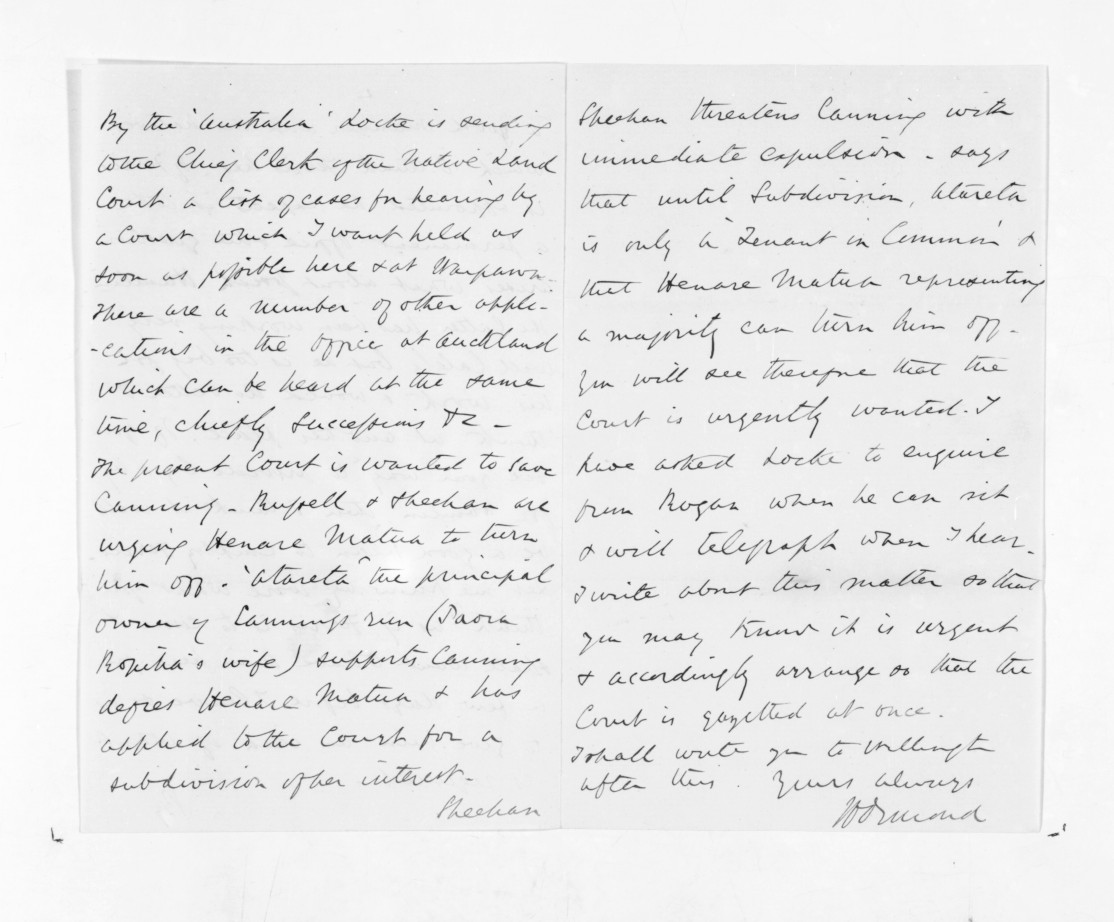 By the 'Australia' Locke is sending
to the Chief Clerk of the Native Land
Court a list of cases for hearing by
a Court which I want held as
soon as possible here & at Waipawa.
There are a number of other appli-
-cations in the office at Auckland
which can be heard at the same
time, chiefly successions &c -
The present Court is wanted to save
Canning - Russell & Sheehan are
urging Henare Matua to turn
him off. "Atareta" the principal
owner of Cannings run (Paora
Ropiha's wife) supports Canning
defies Henare Matua & has
applied to the Court for a
subdivision of her interest.
Sheehan
Sheehan threatens Canning with
immediate expulsion - says
that until Subdivision, Atareta
is only a "Tenant in Common" &
that Henare Matua representing
a majority can turn him off -
You will see therefore that the
Court is urgently wanted. I
have asked Locke to enquire
from Rogan when he can sit
& will telegraph when I hear.
I write about this matter so that
you may know it is urgent
& accordingly arrange so that the
Court is gazetted at once.
I shall write you to Wellington
after this. Yours always
JDOrmond